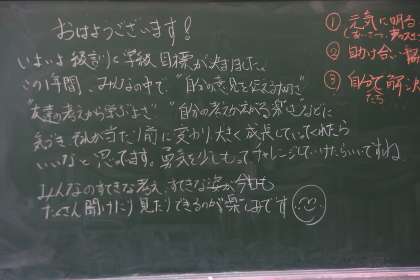 おはようございます!
いよいよ役割りに学級目標が決まりました。
この1年間、みんなの中で、"自分の意見を伝える
"友達の考えから学ぶよさ" "自分の考えが広がる楽しさ"などに
気づき、それが当たり前に変わり大きく成長していってくれたら
いいなと思ってます。勇気を少しもってチャレンジしていけたらいいですね
みんなのすてきな考え、すてきな姿が今日も
たくさん聞けたり見たりできるのが楽しみです
① 元気に明る
② 助け合い
③ 自分で解決
たち